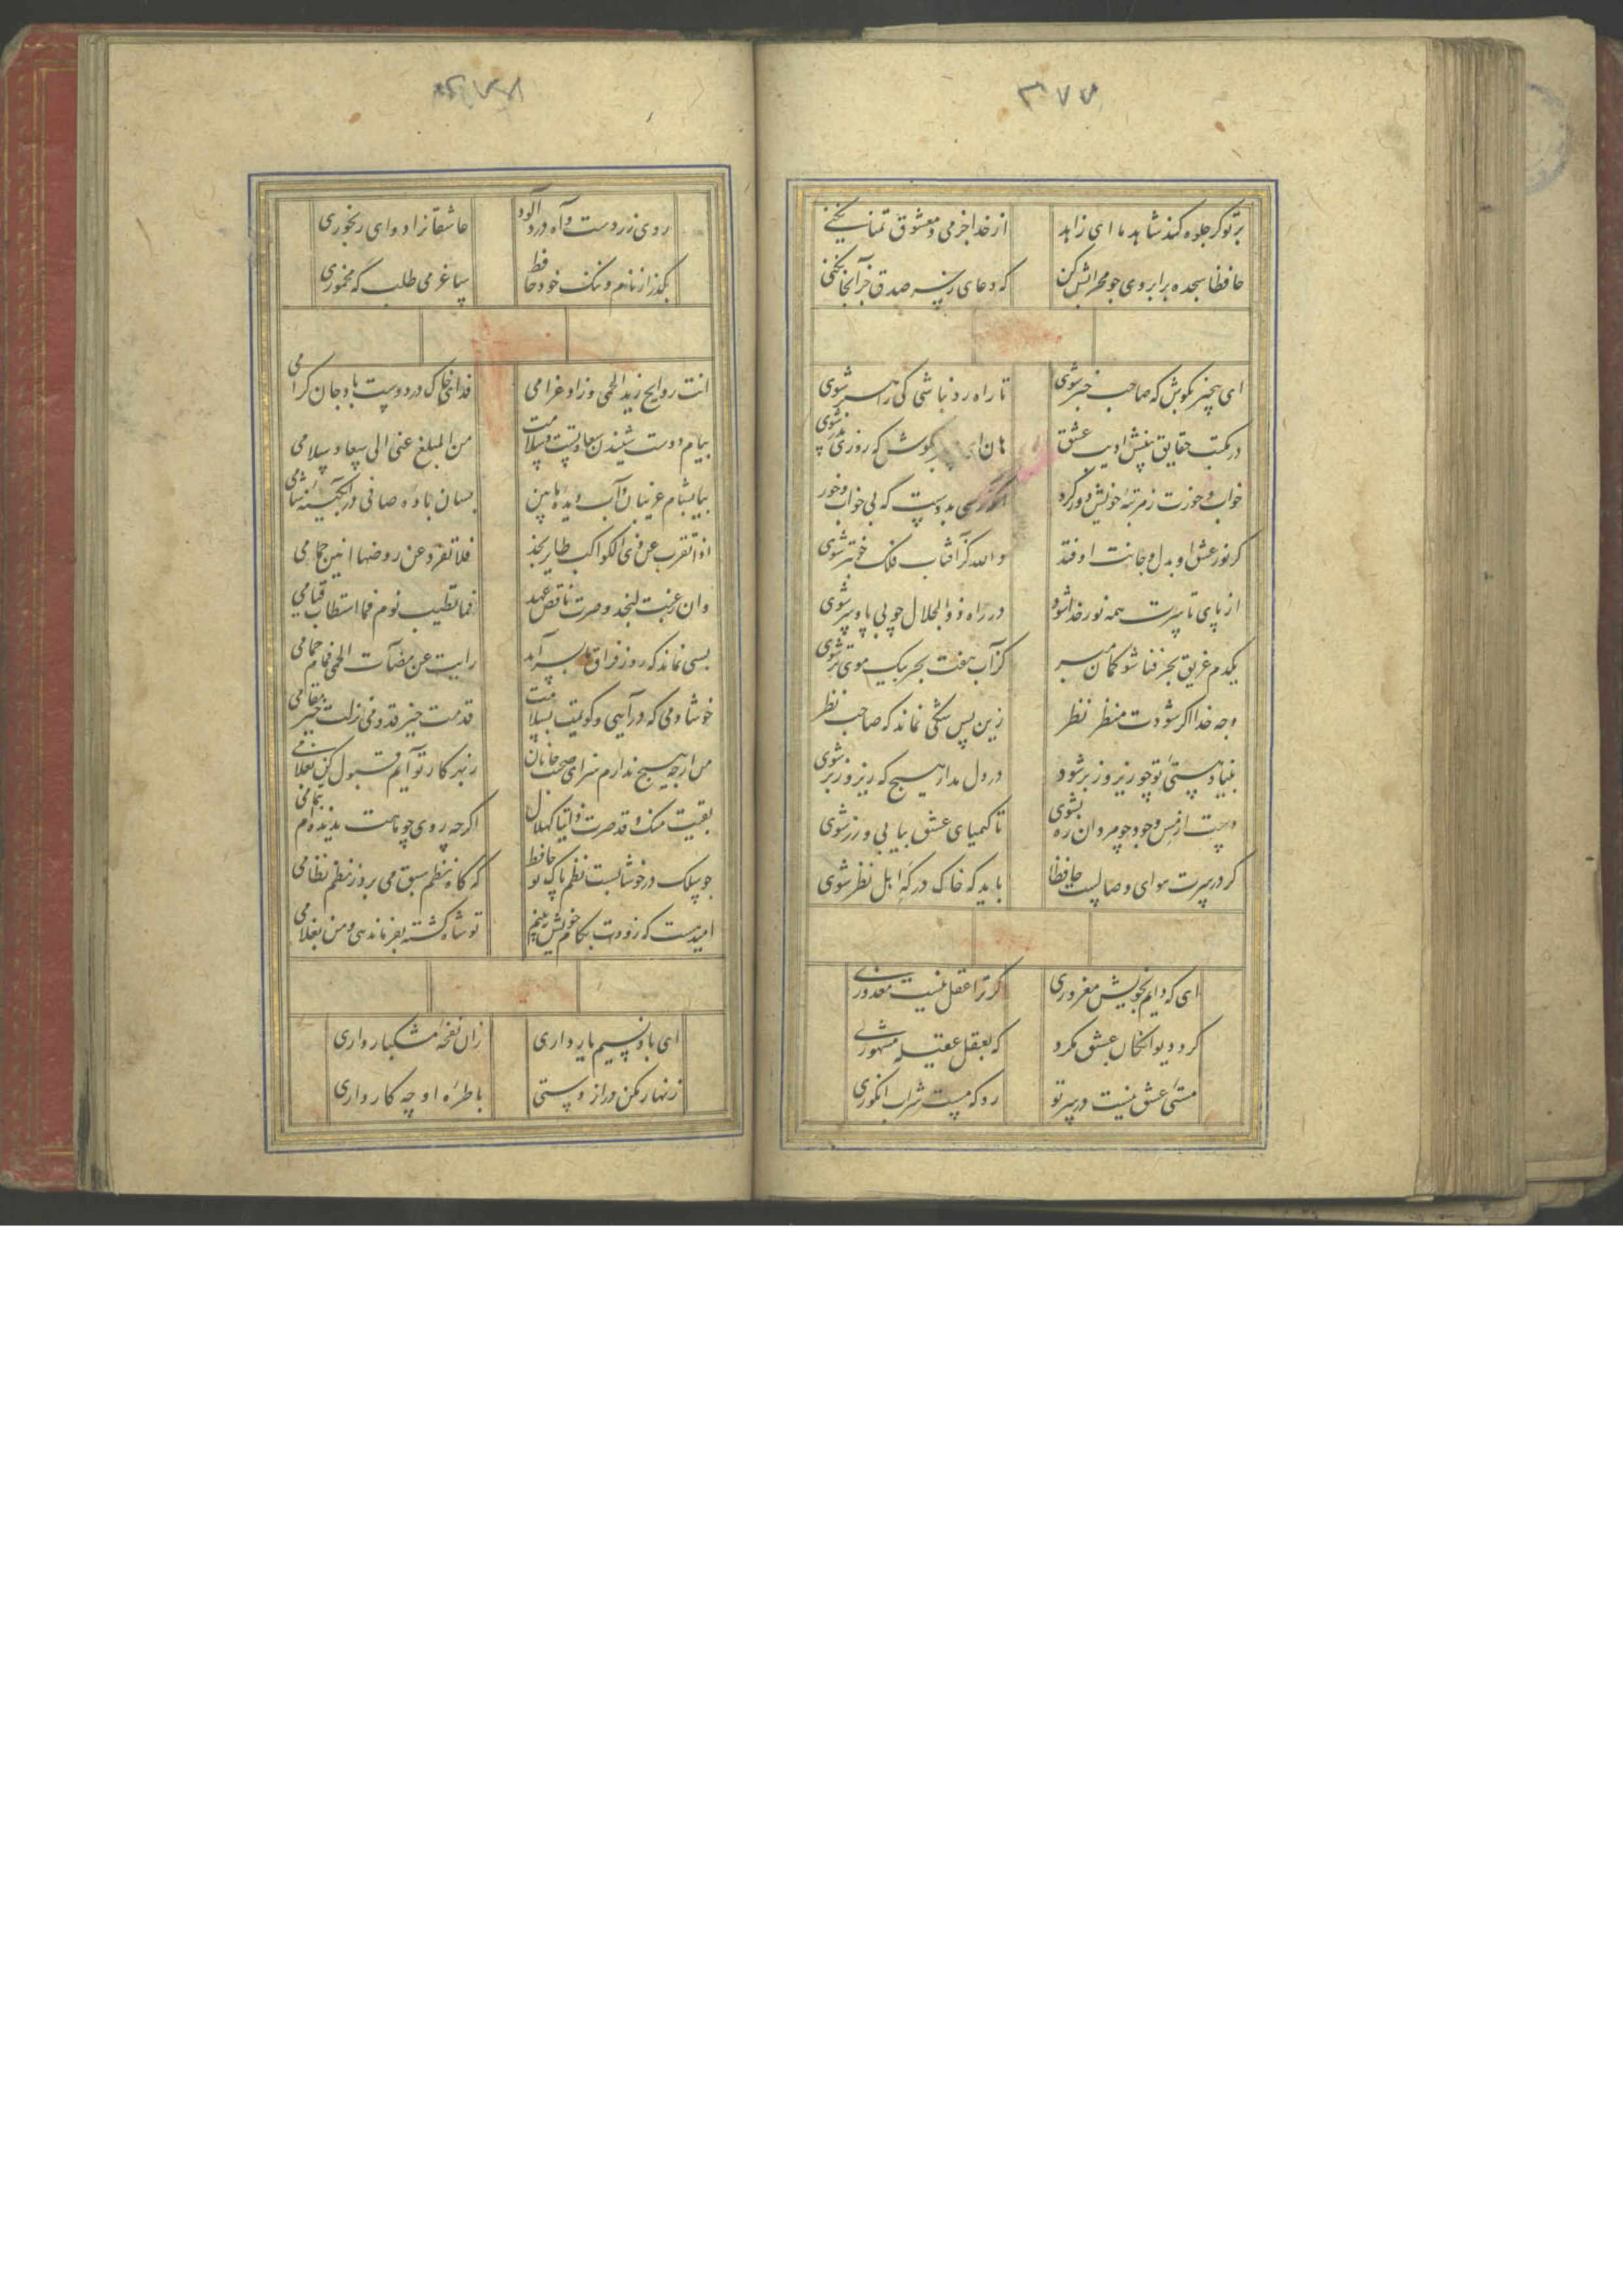 ۳۷۷
بر تو گر جلوه کند شاهد ما ای زاهد از خدا جز می و معشوق تمنا نکنی
حافظا سجده بر ابروی چو محرابش کن که دعای ز سر صدق جز آنجا نکنی
ای بیخبر بکوش که صاحب خبر شوی تا راه رو نباشی کی راهبر شوی
در مکتب حقایق پیش ادیب عشق هان ای بکوش که روزی پدر شوی
خواب و خورت ز مرتبه خویش دور کرد آنگه رسی بدوست که بی خواب و خور شوی
گر نور عشق او بدل و جانت اوفتد والله کز آفتاب فلک خوبتر شوی
از پای تا سرت همه نور خدا شود در راه ذوالجلال چو بی پا و سر شوی
یکدم غریق بحر فنا شو گمان مبر کز آب هفت بحر بیک موی تر شوی
وجه خدا اگر شودت منظر نظر زین پس شکی نماند که صاحب نظر شوی
بنیاد هستی تو چو زیر و زبر شود در دل مدار هیچ که زیر و زبر شوی
دست از مس وجود چو مردان ره بشوی تا کیمیای عشق بیابی و زر شوی
گر در سرت هوای وصالست حافظا باید که خاک درگه اهل نظر شوی
ای که دایم بخویش مغروری گر ترا عقل نیست معذوری
گرد دیوانگان عشق مگرد که بعقل عقیله مشهوری
مستی عشق نیست در سر تو رو که مست شراب انگوری
روی زردست و آه درد آلود عاشقانرا دوای رنجوری
بگذر از نام و ننگ خود حافظ ساغر می طلب که مخموری
اتت روایح زند الحمی و زاد غرامی فدای خاک در دوست باد جان گرامی
پیام دوست شنیدن سعادتست و سلامت من المبلغ عنی الی سعاد سلامی
بیا بشام غریبان و آب دیده ما بین بسان باده صافی در آبگینه شامی
اذا تقرب عن ذی الکواکب طایر بخد فلا تفرد عن روضها انین حمامی
وان عزبت لبخد وصرت ناقض عهد فما تطیب نوم فما استطاب قیامی
بسی نماند که روز فراق ما بسر آید رایت عن هضات الحمی قیام حمامی
خوشا دمی که درآیی و گویمت بسلامت قدمت خیر قدوم نزلت خیر مقامی
من ارچه هیچ ندارم سزای صحبت جانان ز بهر کار تو آیم قبول کن بغلامی
بقیت منک و قد صرت ذائبا کهلال اگرچه روی چو ماهت بدیده ام بتمامی
چو سلک در خوشابست نظم پاک تو حافظ که گاه نظم سبق می برد ز نظم نظامی
امید هست که زودت بکام خویش ببینم تو شاه گشته بفرماندهی و من بغلامی
ای باد نسیم یار داری زان نفخه مشکبار داری
زنهار مکن دراز دستی با طره او چه کار داری